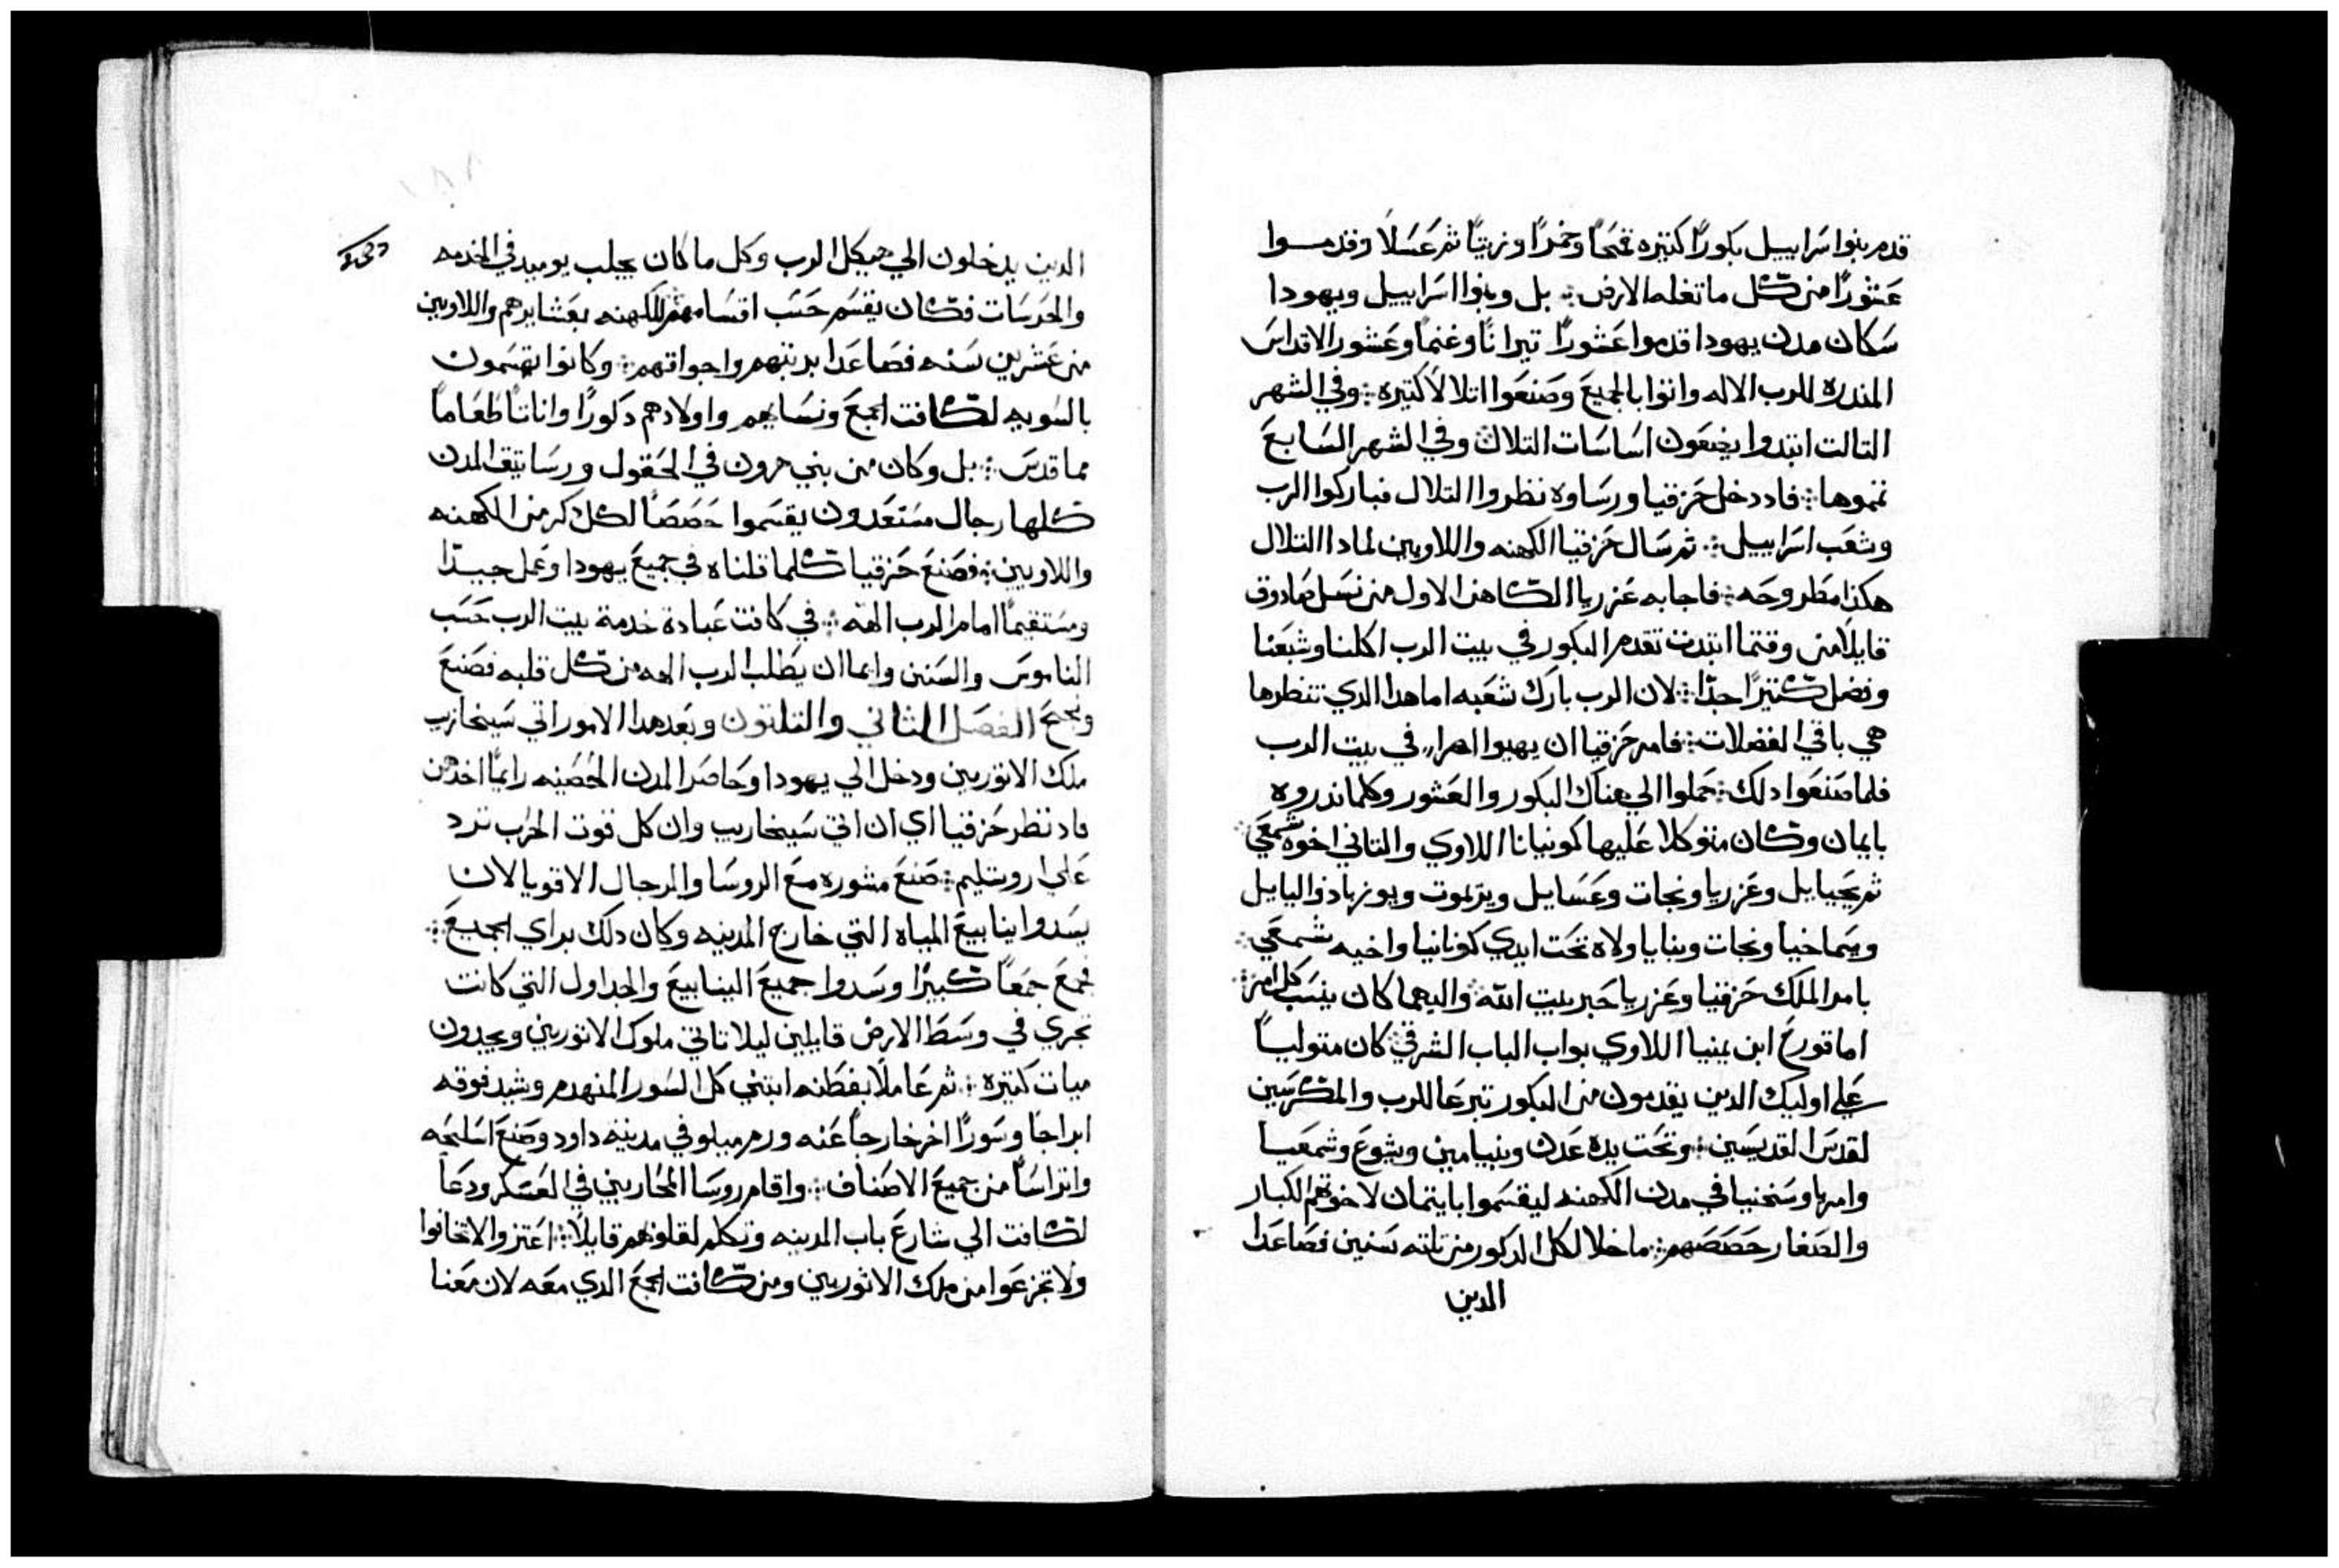 قدم بنوا سَراييل بكورًا كتيره قمحًا وخمرًا وزيتًا ثم عَسَلًا وقدمــوا
عَشورًا من كل ما تغله الارض ؞ بل وبنوا اسَراييل ويهودا
سَكان مدن يهودا قدموا عَشورًا تيرانًا وغنمًا وعَشور الاقداسَ
المندره للرب الاله واتوا بالجميعَ وصَنعَوا اتلالاً كتيره ؞ وفي الشهر
التالت ابتدوا يضعَون اسَاسَات التلال وفي الشهر السَابعَ
تموها ؞ فاد دخل حَزقيا ورسَاوه نظروا التلال فباركوا الرب
وشعَب اسَراييل ؞ ثم سَال حَزقيا الكهنه واللاويين لمادا التلال
هكذا مطروحَه ؞ فاجابه عَزريا الكاهن الاول من نسَل صَادوق
قايلًا من وقتما ابتدت تقدم البكور في بيت الرب اكلنا وشبعَنا
وفضل كتيرًا جدًا ؞ لان الرب بارك شعَبه اما هدا الدي تنظرها
هي باقي الفضلات ؞ فامر حَزقيا ان يهيوا اهراء في بيت الرب
فلما صَنعَوا دلك ؞ حَملوا الي هناك البكور والعَشور وكلما ندروه
بايمان وكان متوكلا عَليها كونيانا اللاوي والتاني اخوه شمعَي ؞
ثم يحَيايل وعَزريا ونحات وعَسَايل ويرَيموت ويوزباد واليايل
ويسَماخيا ونحات وبنايا ولاه تحَت ايدي كونانيا واخيه شمعَي ؞
بامر الملك حَزقيا وعَزريا حَبر بيت الله واليهما كان ينسَب كل امر ؞
اما قورحَ ابن يمنيا اللاوي بواب الباب الشرقي كان متوليـاً
عَلي اوليك الدين يقدمون من البكور تبرعَا للرب والمكرسَين
لقدسَ القديسَين ؞ وتحَت يده عَدن وبنيامين ويشوعَ وشمعَيـا
وامريا وسَخنيا في مدن الكهنه ليقسَموا بايتمان لاخوتهم الكبار
والصَغار حَصَصَهم ؞ ما خلا لكل الدكور من تلته سَنين فصَاعَدا
الدين
الدين يدخلون الي هيكل الرب وكل ما كان يجلب يوميد في الخدمه
والحَرسَات فكان يقسَم حَسَب اقسَامهم للكهنه بعَشايرهم واللاويين
من عَشرين سَنه فصَاعَدا برتبهم واجواقهم ؞ وكانوا يقسَمون
بالسَويه لكافت الجمعَ ونسَايهم واولادهم دكورًا واناتًا طعَامًا
مما قدسَ ؞ بل وكان من بني هرون في الحَقول ورسَاتيق المدن
كلها رجال مستعَدون يقسَموا حَصَصَاً لكل دكر من الكهنه
واللاويين ؞ فصَنعَ حَزقيا كلما قلناه في جميعَ يهودا وعَمل جيـدًا
ومسَتقيمًا امام الرب الهه ؞ في كافت عَبادة خدمة بيت الرب حَسَب
الناموسَ والسَنن وايما ان يطلب الرب الهه من كل قلبه فصَنعَ
ونجحَ الفصَل التاني والتلتون وبعَد هدا الامور اتي سَينحَاريب
ملك الاتوريين ودخل الي يهودا وحَاصَر المدن الحَصَينه رايمًا اخدهن
فاد نظر حَزقيا اي ان اتي سَينحاريب وان كل قوت الحَرب ترد
عَلي اروشليم ؞ صَنعَ مشوره معَ الروسَا والرجال الاقويا لان
يسَدوا ينابيعَ المياه التي خارج المدينه وكان دلك براي الجميعَ ؞
فجمعَ جمعَاً كبيرًا وسَدوا جميعَ الينابيعَ والجداول التي كانت
تجري في وسَط الارض قايلين ليلا تاتي ملوك الاتوريين ويجدون
ميات كتيره ؞ ثم عَاملًا بفطنه ابتني كل السَور المنهدم وشيد فوقه
ابراجًا وسَورًا اخر خارجاً عَنه ورمم ميلو في مدينة داود وصَنعَ اسَلحَه
واتراسَاً من جميعَ الاصَناف ؞ واقام روسَا المحَاربين في العَسَكر ودعَا
لكافت الي شارعَ باب المدينه وتكلم لقلوبهم قايلًا ؞ اعَتزوا لا تخافوا
ولا تجزعَوا من ملك الاتوريين ومن كافت الجمعَ الدي معَه لان معَنا